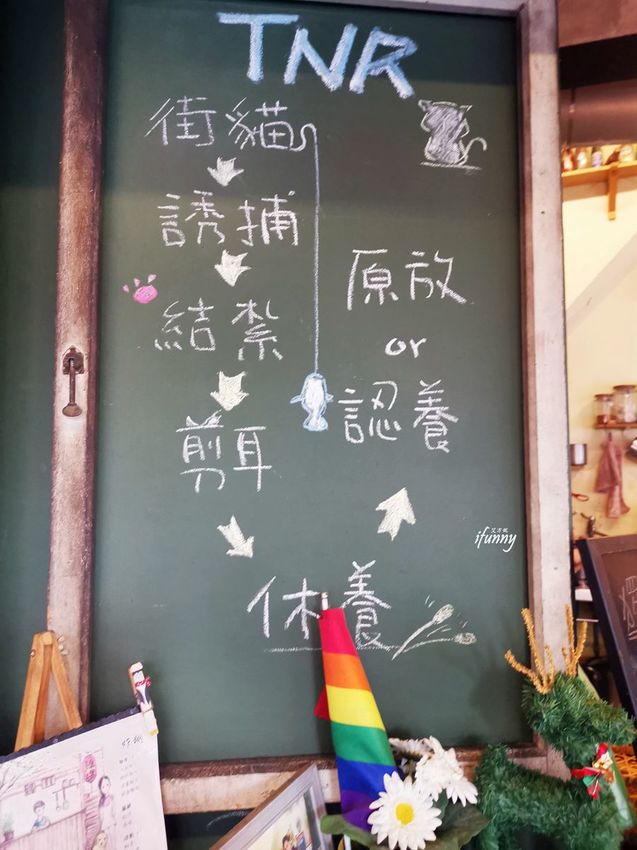 TNR
街貓
誘捕
結紮
剪耳
休養
原放
or
認養
艾方妮
ifunny